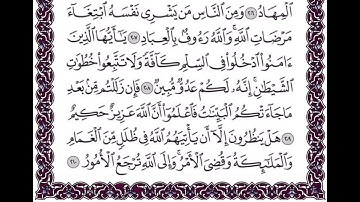 ٱلۡمِهَادُ ٢٠٦ وَمِنَ ٱلنَّاسِ مَن يَشۡرِي نَفۡسَهُ ٱبۡتِغَآءَ
مَرۡضَاتِ ٱللَّهِۚ وَٱللَّهُ رَءُوفُۢ بِٱلۡعِبَادِ ٢٠٧ يَٰٓأَيُّهَا ٱلَّذِينَ
ءَامَنُواْ ٱدۡخُلُواْ فِي ٱلسِّلۡمِ كَآفَّةٗ وَلَا تَتَّبِعُواْ خُطُوَٰتِ
ٱلشَّيۡطَٰنِۚ إِنَّهُۥ لَكُمۡ عَدُوّٞ مُّبِينٞ ٢٠٨ فَإِن زَلَلۡتُم مِّنۢ بَعۡدِ
مَا جَآءَتۡكُمُ ٱلۡبَيِّنَٰتُ فَٱعۡلَمُوٓاْ أَنَّ ٱللَّهَ عَزِيزٌ حَكِيمٌ
٢٠٩ هَلۡ يَنظُرُونَ إِلَّآ أَن يَأۡتِيَهُمُ ٱللَّهُ فِي ظُلَلٖ مِّنَ ٱلۡغَمَامِ
وَٱلۡمَلَٰٓئِكَةُ وَقُضِيَ ٱلۡأَمۡرُۚ وَإِلَى ٱللَّهِ تُرۡجَعُ ٱلۡأُمُورُ ٢١٠